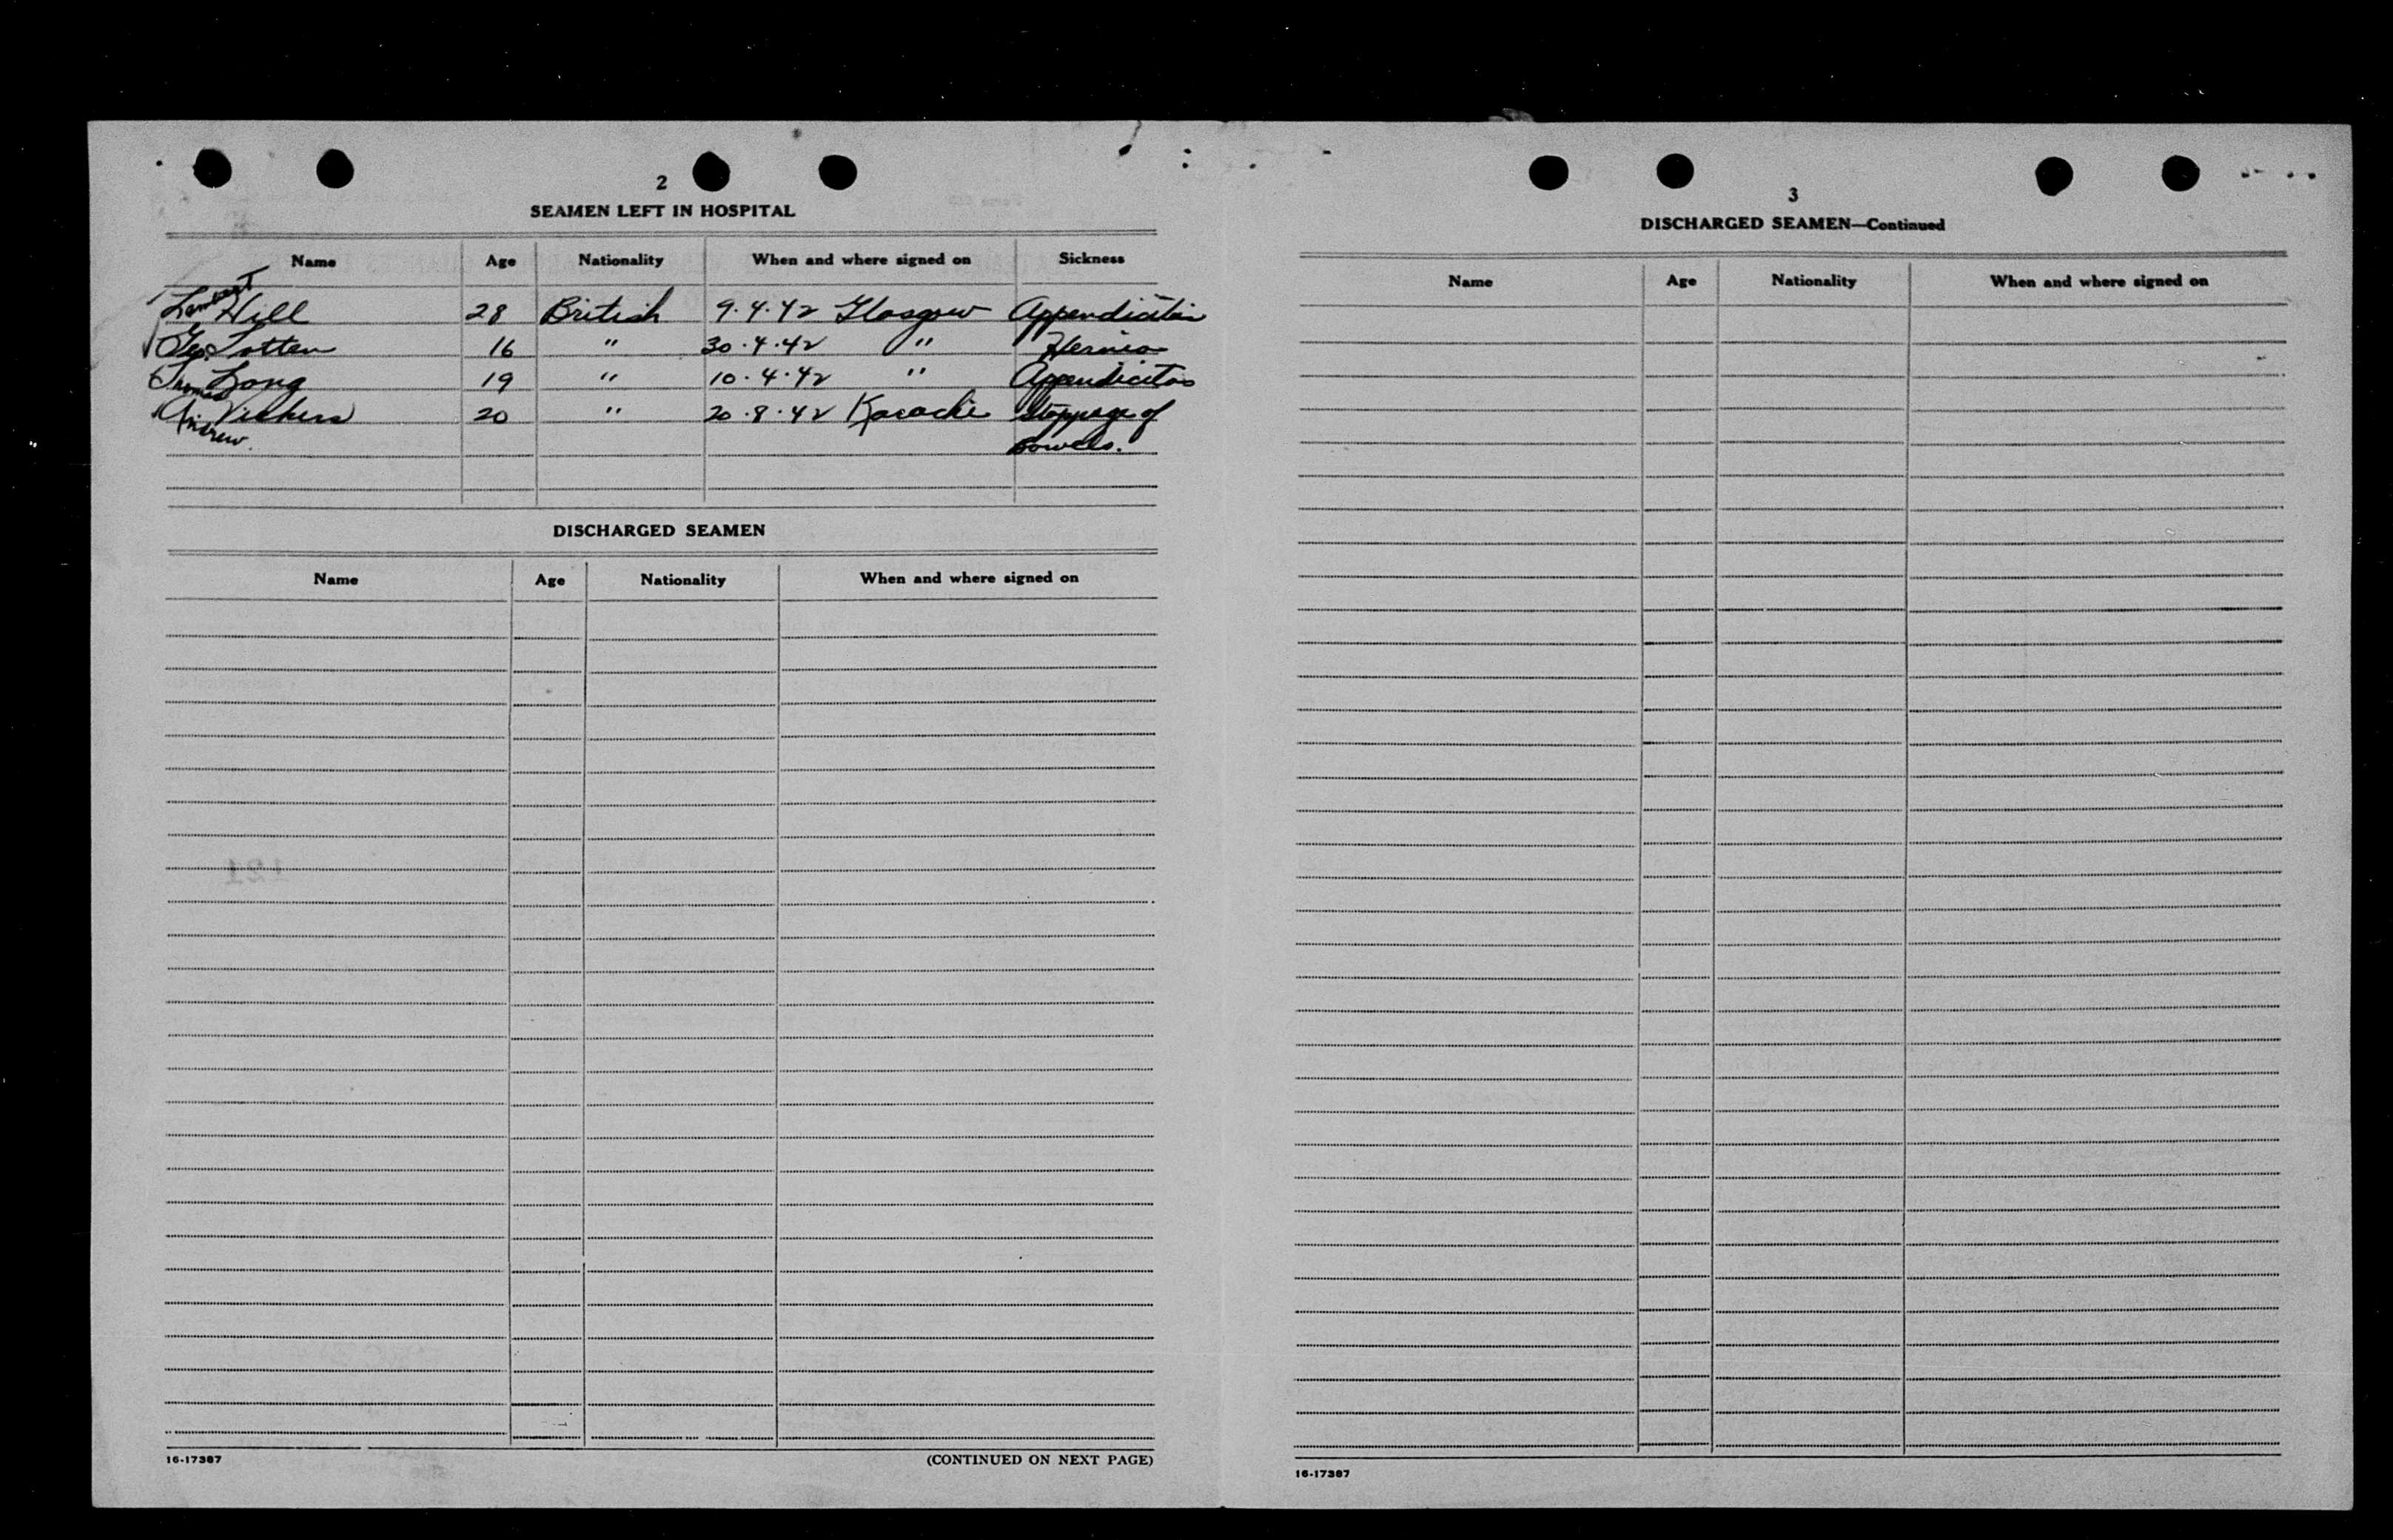 2
SEAMEN LEFT IN HOSPITAL
Name Age Nationality When and where signed on Sickness
Lambert Hill 28 British 9.4.42 Glasgow Appendicitis
Geo. Totten 16 " 30.4.42 " Hernia
Long 19 " 10.4.42 " Appendicitis
Vickers 20 " 20.8.42 Karachi Stoppage of
Andrew. Bowels.
DISCHARGED SEAMEN
Name Age Nationality When and where signed on
16-17387 (CONTINUED ON NEXT PAGE)
3
DISCHARGED SEAMEN—Continued
Name Age Nationality When and where signed on
16-17387